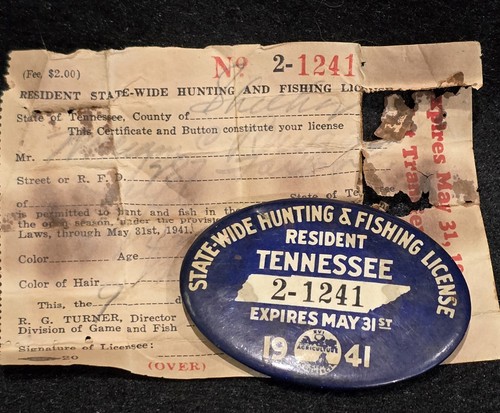 (Fee, $2.00)
No 2-1241
RESIDENT STATE-WIDE HUNTING AND FISHING
State of Tennessee, County of
This Certificate and Button constitute your license
Mr.
Street or R. F. D.
of State of
is permitted to hunt and fish in the
the open season, under the
Laws, through May 31st, 1941.
Color Age
Color of Hair
This, the
R. G. TURNER, Director
Division of Game and Fish
Signature of Licensee:
20
(OVER)
xpires May 31,
STATE-WIDE HUNTING & FISHING LICENSE
RESIDENT
TENNESSEE
2-1241
EXPIRES MAY 31ST
19 41
AGRICULTURE